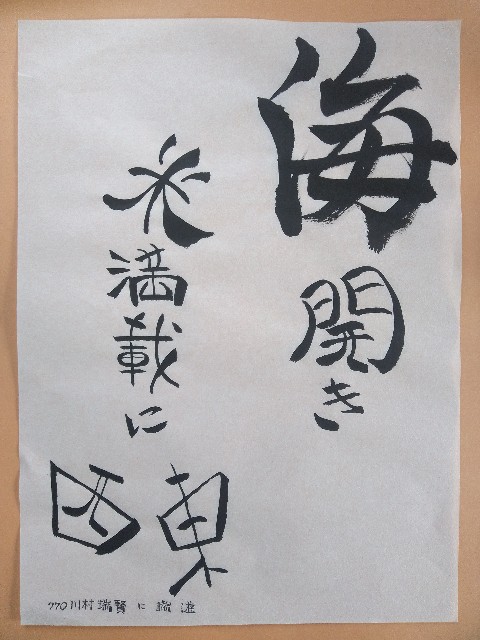 海開き
米満載に
東西
770川村瑞賢に